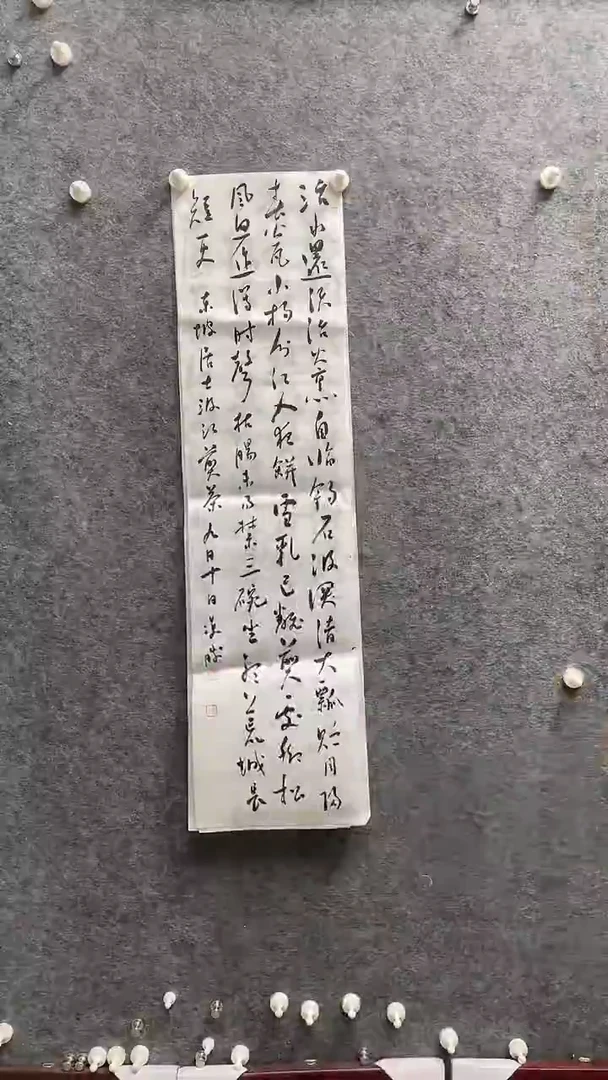 活水還須活火烹自临釣石汲深清大瓢貯月歸
春瓮小杓分江入夜缾雪乳已翻煎處脚松
風忽作瀉時聲枯腸未易禁三碗坐聽荒城長
短更 東坡居士汲江煎茶 九月十日